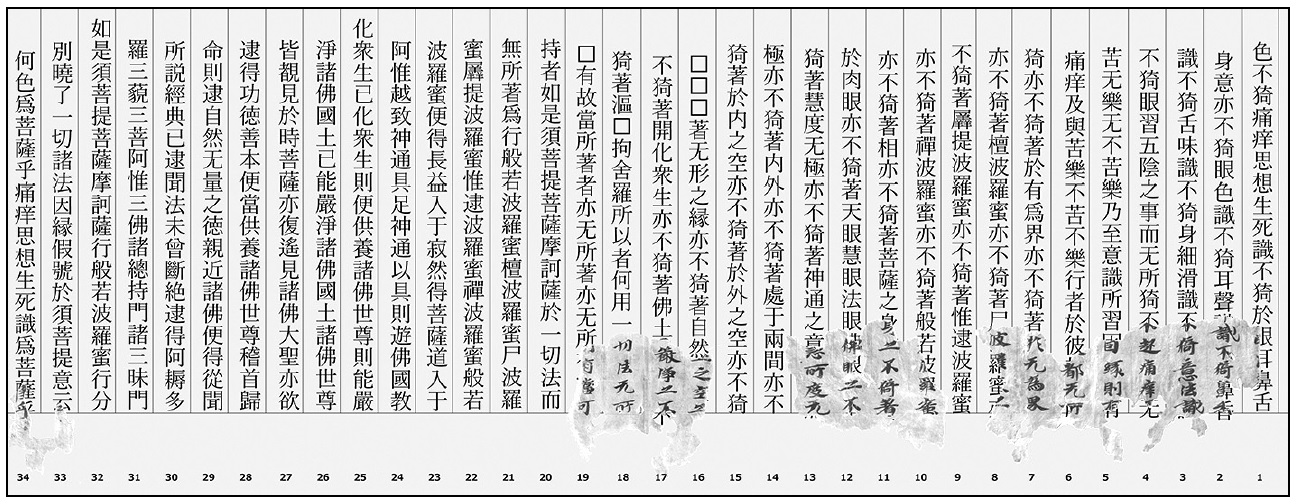 色不猗痛痒思想生死識不猗於眼耳鼻舌
身意亦不猗眼色識不猗耳聲識不猗鼻香
識不猗舌味識不猗身細滑識不猗意法識
不猗眼習五陰之事而无所猗不起痛痒无
苦无樂无不苦樂乃至意識所習因緣則有
痛痒及與苦樂不苦不樂行者於彼都无所
猗亦不猗著於有爲界亦不猗著於无爲界
亦不猗著檀波羅蜜亦不猗著尸波羅蜜亦
不猗著羼提波羅蜜亦不猗著惟逮波羅蜜
亦不猗著禪波羅蜜亦不猗著般若波羅蜜
亦不猗著相亦不猗著菩薩之身亦不倚著
於肉眼亦不猗著天眼慧眼法眼佛眼亦不
猗著慧度无極亦不猗著神通之意所度无
極亦不猗著内外亦不猗著處于兩間亦不
猗著於内之空亦不猗著於外之空亦不猗
□□□著无形之緣亦不猗著自然之
不猗著開化衆生亦不猗著佛土嚴淨亦不
猗著漚□拘舍羅所以者何用一切法无所
□有故當所著者亦无所著亦无所有當可
持者如是須菩提菩薩摩訶薩於一切法而
無所著爲行般若波羅蜜檀波羅蜜尸波羅
蜜羼提波羅蜜惟逮波羅蜜禪波羅蜜般若
波羅蜜便得長益入于寂然得菩薩道入于
阿惟越致神通具足神通以具則遊佛國教
化衆生已化衆生則便供養諸佛世尊則能嚴
淨諸佛國土已能嚴淨諸佛國土諸佛世尊
皆覩見於時菩薩亦復遙見諸佛大聖亦欲
逮得功徳善本便當供養諸佛世尊稽首歸
命則逮自然无量之徳親近諸佛便得從聞
所説經典已逮聞法未曾斷絶逮得阿耨多
羅三藐三菩阿惟三佛諸總持門諸三昧門
如是須菩提菩薩摩訶薩行般若波羅蜜行分
別曉了一切諸法因緣假號於須菩提意云
何色爲菩薩乎痛痒思想生死識爲菩薩乎
34 33 32 31 30 29 28 27 26 25 24 23 22 21 20 19 18 17 16 15 14 13 12 11 10 9 8 7 6 5 4 3 2 1